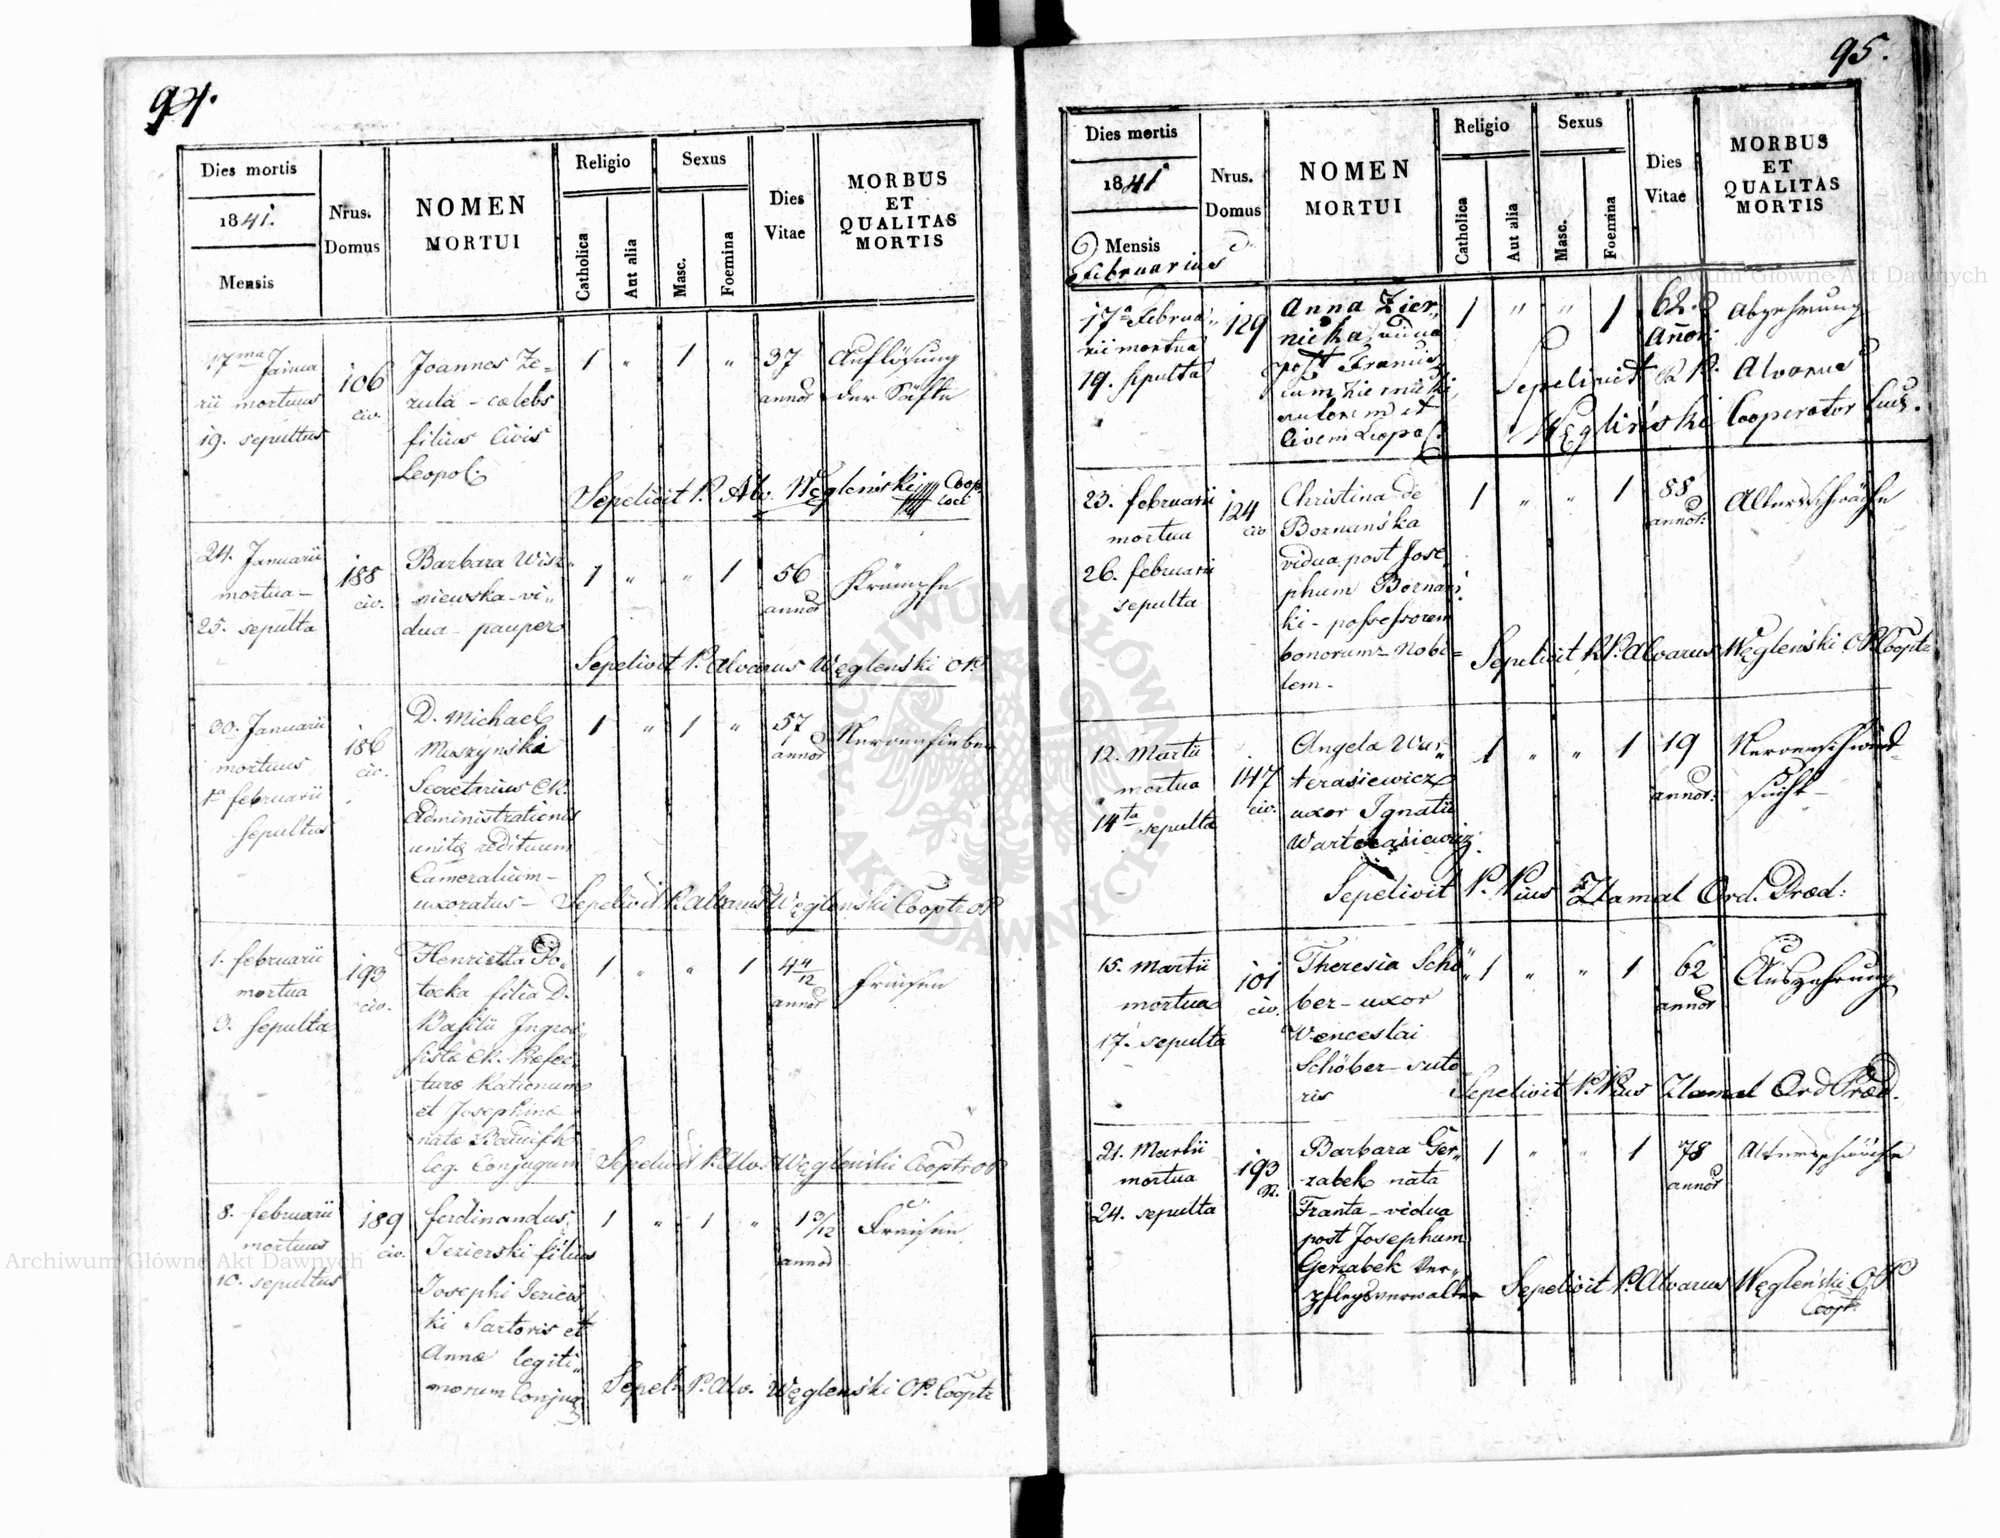 94.
Dies mortis
1841.
Mensis
Nrus.
Domus
NOMEN
MORTUI
Religio
Catholica
Aut alia
Sexus
Masc.
Foemina
Dies
Vitae
MORBUS
ET
QUALITAS
MORTIS
17ma Janua
rii mortuus
19. sepultus
106
civ.
Joannes Ze-
zula - cælebs
filius Civis
Leopol:
1 " 1 "
37
annor
Auflösung
der Säfte
Sepelivit P. Alv. Węgleński Coop.
loci
24. Januarii
mortua -
25. sepulta
188
civ.
Barbara Wisz-
niewska - vi-
dua - pauper
1 " " 1
56
annor
Krämpfe
Sepelivit P. Alvarus Węgleński OP.
30. Januarii
mortuus
1a februarii
sepultus
186
civ.
D. Michael
Muszyński
Secretarius CR.
Administrationis
unitæ redituum
Cameralium -
uxoratus -
1 " 1 "
57
annor
Nervenfieber
Sepelivit P. Alvarus Węgleński Cooptr OP
1. februarii
mortua
3. sepulta
193
civ.
Henrietta Po-
tocka filia D.
Basilii Ingros-
sista CR. Præfec-
turæ Rationum
et Josephina
nata
leg. Conjugum
1 " " 1
4 4/12
annor
Fraisen
Sepelivit P. Alv. Węgleński Cooptr OP
8. februarii
mortuus
10. sepultus
189
civ.
Ferdinandus
Jezierski filius
Josephi Jeziers
ki Sartoris et
Annæ legiti-
morum Conjug
1 " 1 "
1 3/12
annor
Fraisen
Sepelt P. Alv. Węgleński OP. Cooptr
95.
Dies mortis
1841
Mensis
Februarius
Nrus.
Domus
NOMEN
MORTUI
Religio
Catholica
Aut alia
Sexus
Masc.
Foemina
Dies
Vitae
MORBUS
ET
QUALITAS
MORTIS
17a Februa
rii mortua
19. sepulta
129
Anna Zier
nicka vidua
post Francis
cum
et
Civem Leopol.
1 " " 1
62
Annor:
Abzehrung
Sepelivit R. P. Alvarus
Węgliński Cooperator
23. februarii
mortua
26. februarii
sepulta
124
civ
Christina de
Boznańska
vidua post Jose
phum Boznańs
ki - possessorem
bonorum - Nobi=
lem -
1 " " 1
88
annor:
Altersschwäche
Sepelivit R. P. Alvarus Węgleński OP. Cooptr
12. Martii
mortua
14ta sepulta
147
civ.
Angela War,,
terasiewicz
uxor Ignatii
Warterasiewicz
1 " " 1
19
annor:
Nervenschwind-
sucht -
Sepelivit P. Pius Zlamal Ord. Præd:
15. Martii
mortua
17. sepulta
101
civ.
Theresia Schö
ber - uxor
Wenceslai
Schöber - suto
ris
1 " " 1
62
annor
Auszehrung
Sepelivit P. Pius Zlamal Ord Præd.
21. Martii
mortua
24. sepulta
193
Barbara Ger,,
zabek nata
Franta - vidua
post Josephum
Gerzabek Ver,,
pflegsverwalter
1 " " 1
78
annor
Altersschwäche
Sepelivit P. Alvarus Węgleński O.P
Cooptr
Archiwum Główne Akt Dawnych
Archiwum Główne Akt Dawnych
ARCHIWUM GŁÓWNE AKT DAWNYCH